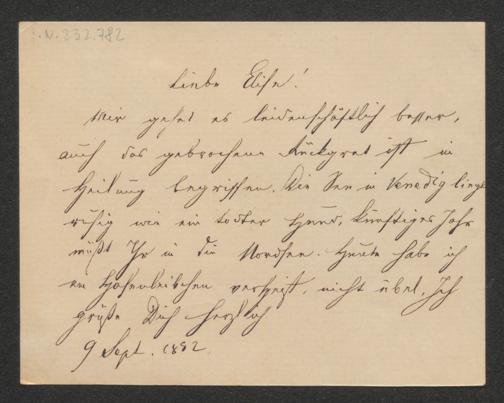 I.N. 232.782
Liebe Elise!
Mir geht es leidenschaftlich besser,
auch das gebrochene Rückgrat ist in
Heilung begriffen. Die See in Venedig liegt
ruhig wie ein todter Hund, künftiges Jahr
müßt Ihr in die Nordsee. Heute habe ich
ein verspeist, nicht übel. Ich
grüße Dich herzlich
9 Sept. 1882